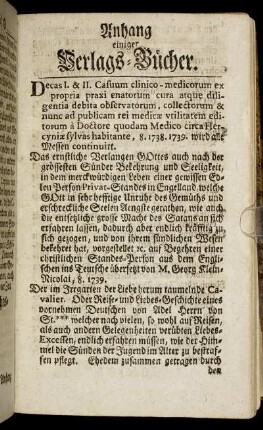 Anhang
einiger
Verlags-Bücher.
Decas I. & II. Casuum clinico-medicorum ex
propria praxi enatorum cura atque dili-
gentia debita observatorum, collectorum &
nunc ad publicam rei medicæ utilitatem edi-
torum à Doctore quodam Medico circa Her-
cyniæ sylvas habitante, 8. 1738. 1739. wird alle
Messen continuirt.
Das ernstliche Verlangen GOttes auch nach der
grössesten Sünder Bekehrung und Seeligkeit,
in dem merckwürdigen Leben einer gewissen Ed-
len Person Privat-Standes in Engelland, welche
GOtt in sehr hefftige Unruhe des Gemüths und
erschreckliche Seelen Aengste gerathen, wie auch
die entsetzliche grosse Macht des Satans an sich
erfahren lassen, dadurch aber endlich kräfftig zu
sich gezogen, und von ihrem sündlichen Wesen
bekehret hat, vorgestellet rc. auf Begehren einer
christlichen Standes-Person aus dem Engli-
schen ins Teutsche übersetzt von M. Georg Klein-
Nicolai, 8. 1739.
Der im Irrgarten der Liebe herum taumelnde Ca-
valier. Oder Reise- und Liebes-Geschichte eines
vornehmen Deutschen von Adel Herrn von
St.*** welcher nach vielen, so wohl auf Reisen,
als auch andern Gelegenheiten verübten Liebes-
Excessen, endlich erfahren müssen, wie der Him-
mel die Sünden der Jugend im Alter zu bestraf-
fen pflegt. Ehedem zusammen getragen durch
den